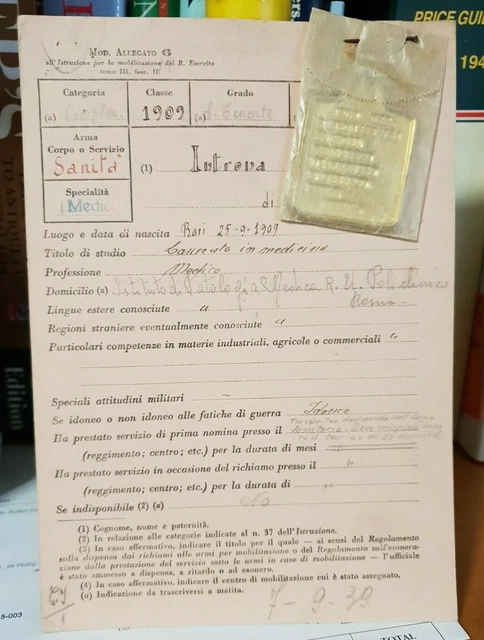 PRICE GUI
194
MOD. ALLEGATO G
all'Istruzione per la mobilitazione del R. Esercito
tomo III, fasc. II
Categoria
Classe
Grado
(a) Complem.
1909
(a) S. Tenente
Arma
Corpo o Servizio
Sanità
(1) Introna
Specialità
Medici
di
Luogo e data di nascita Bari 25-9-1909
Titolo di studio Laureato in medicina
Professione Medico
Domicilio (a) Istituto di Patologia Medica R. U. Policlinico
Roma.
Lingue estere conosciute "
Regioni straniere eventualmente conosciute "
Particolari competenze in materie industriali, agricole o commerciali "
Speciali attitudini militari -
Se idoneo o non idoneo alle fatiche di guerra Idoneo
Ha prestato servizio di prima nomina presso il
(reggimento; centro; etc.) per la durata di mesi
Ha prestato servizio in occasione del richiamo presso il "
(reggimento; centro; etc.) per la durata di "
Se indisponibile (2) (a) No
(1) Cognome, nome e paternità.
(2) In relazione alle categorie indicate al n. 37 dell'Istruzione.
(3) In caso affermativo, indicare il titolo per il quale — ai sensi del Regolamento
sulla dispensa dai richiami alle armi per mobilitazione o del Regolamento sull'esonera-
zione dalla prestazione del servizio sotto le armi in caso di mobilitazione — l'ufficiale
è stato ammesso a dispensa, a ritardo o ad esonero.
(4) In caso affermativo, indicare il centro di mobilitazione cui è stato assegnato.
(a) Indicazione da trascriversi a matita.
7-9-39
Edition
5-003
TOTAL